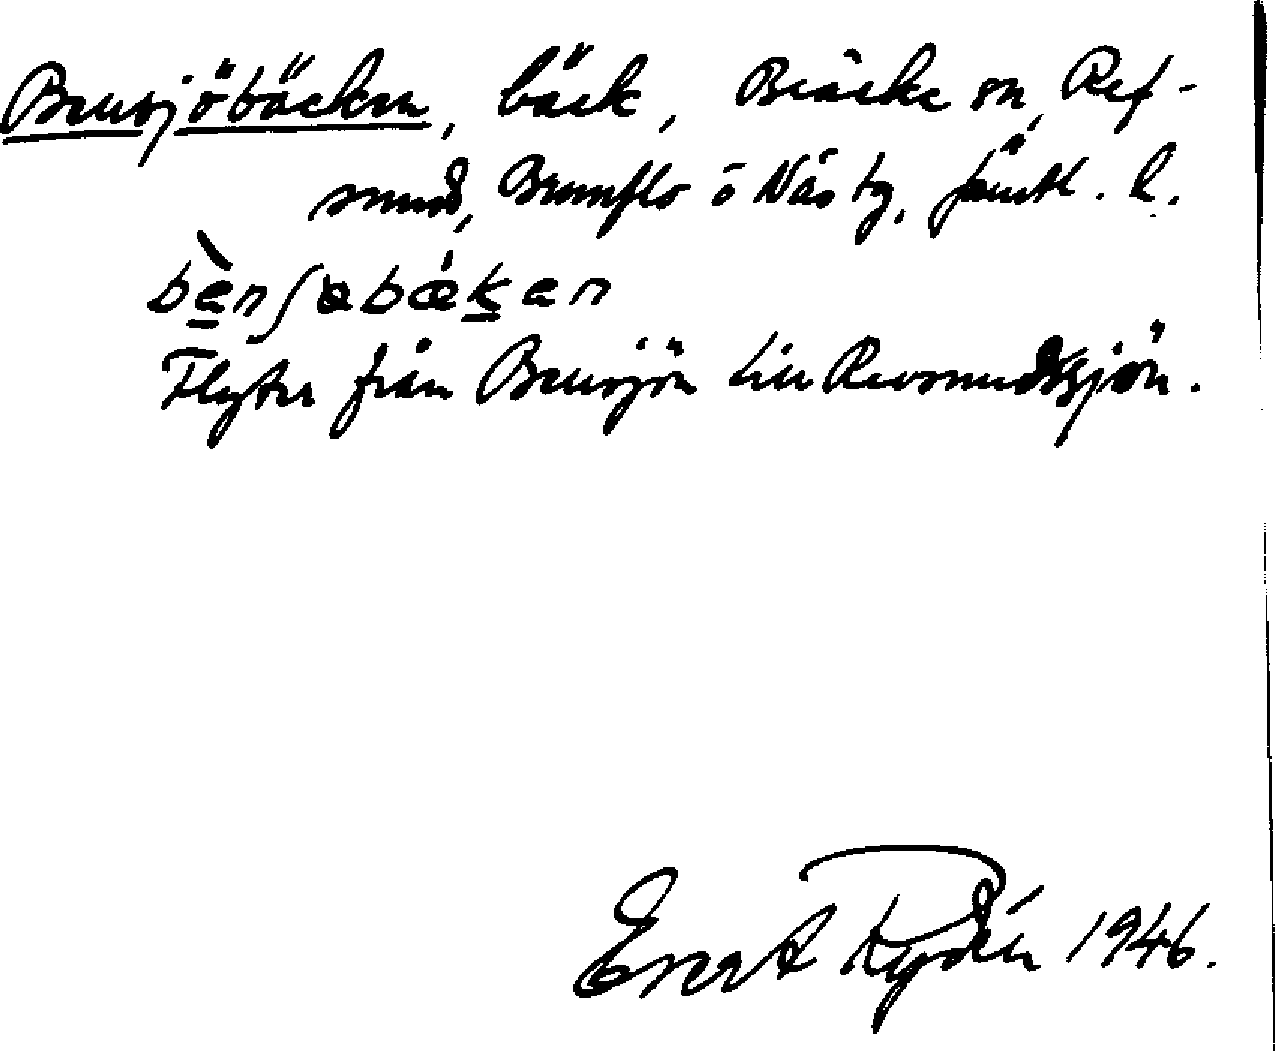 Bensjöbäcken, bäck, Bräcke sn, Ref-
sund, Brunflo o Näs tg, Jämtl. l.
bènʃəbǽk̲ən
Flyter från Bensjön till Revsundssjön.
Evert Rydén 1946.